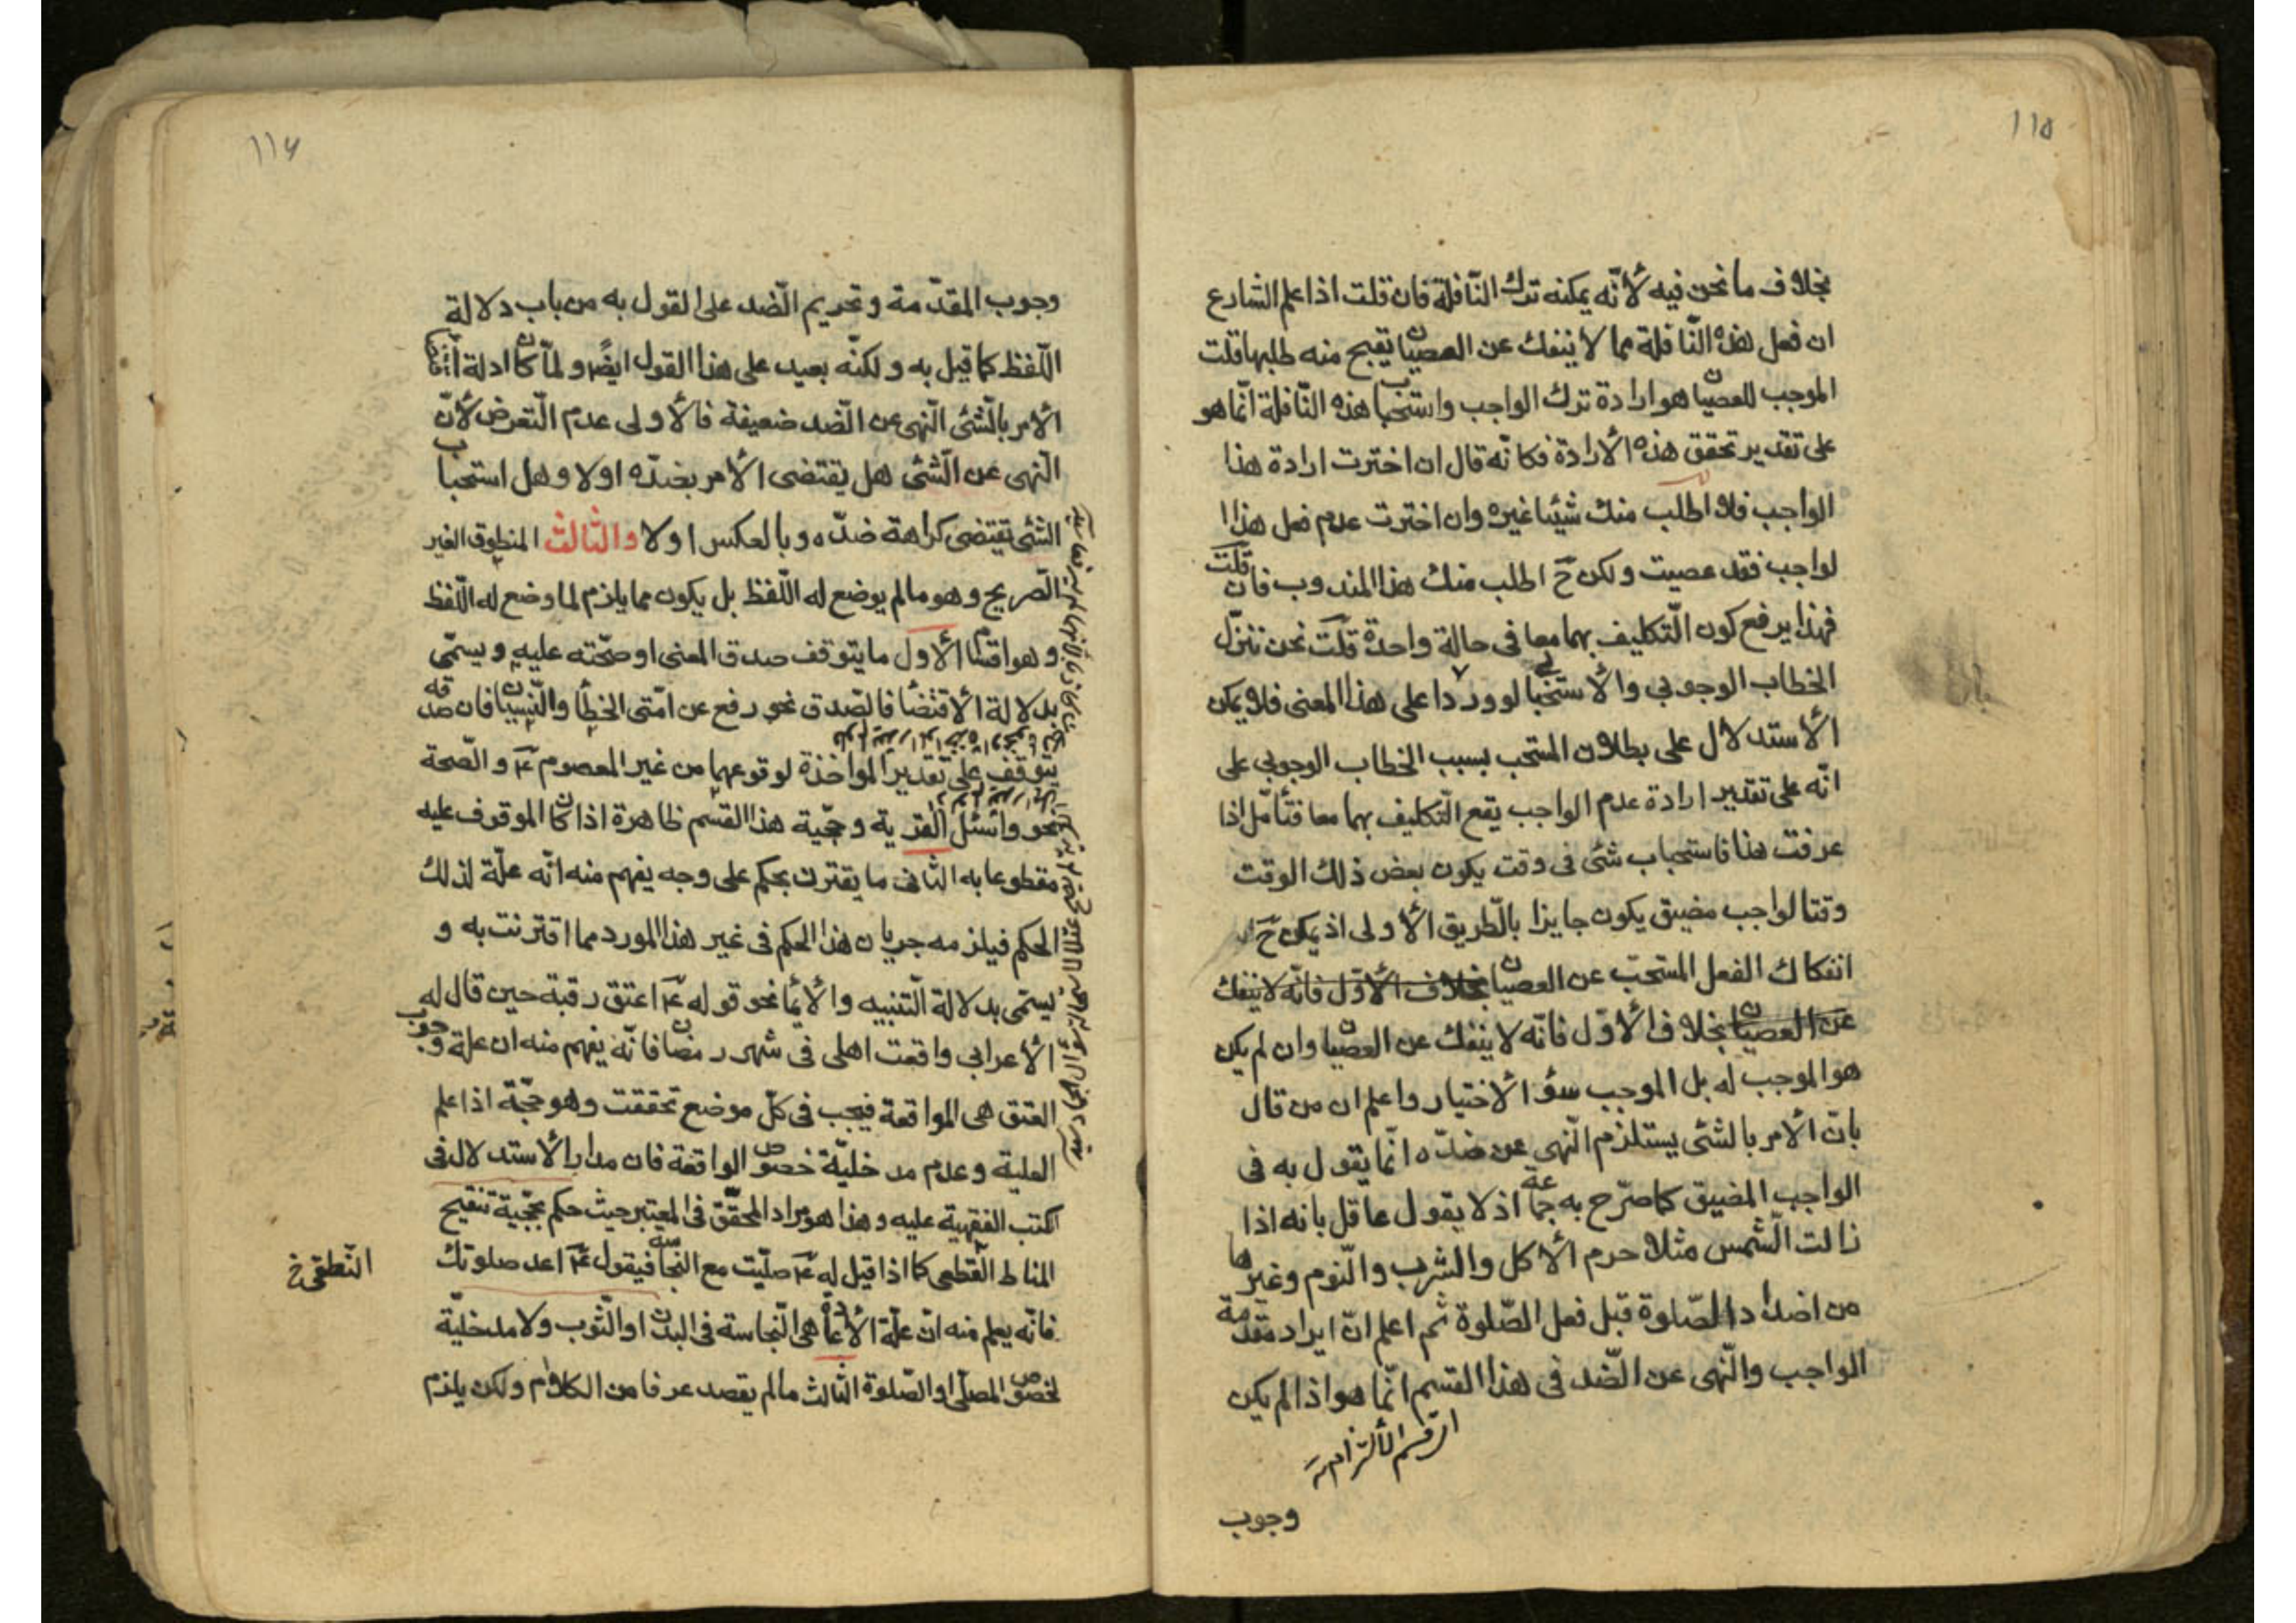 ١١٥
بخلاف ما نحن فيه لأنّه يمكنه ترك النّافلة فان قلت اذا علم الشارع
ان فعل هذه النّافلة مما لا ينفك عن العصيان يقبح منه طلبها قلت
الموجب للعصيان هو ارادة ترك الواجب واستحباب هذه النّافلة انّما هو
على تقدير تحقق هذه الأرادة فكانّه قال ان اخترت ارادة هذا
الواجب فلا اطلب منك شيئا غيره وان اخترت عدم فعل هذا ا
لواجب فقد عصيت ولكن ح اطلب منك هذا المندوب فان قلت
فهذا يرفع كون التّكليف بهما معا فى حالة واحدة قلت نحن ننزّل
الخطاب الوجوبي والأستحبابي لو وردا على هذا المعنى فلا يمكن
الأستدلال على بطلان المستحب بسبب الخطاب الوجوبي على
انّه على تقدير ارادة عدم الواجب يقع التّكليف بهما معا فتأمّل اذا
عرفت هذا فاستحباب شئ فى وقت يكون بعض ذلك الوقت
وقتا لواجب مضيق يكون جايزا بالّطريق الأولى اذ يمكن ح
انفكاك الفعل المستحبّ عن العصيان بخلاف الأوّل فانّه لا ينفك
عن العصيان بخلاف الأوّل فانّه لا ينفك عن العصيان وان لم يكن
هو الموجب له بل الموجب سؤ الأختيار واعلم ان من قال
بانّ الأمر بالشئى يستلزم النّهى عن ضدّه انّما يقول به فى
الواجب المضيق كما صرّح به جماعة اذ لا يقول عاقل بانه اذا
زالت الّشمس مثلا حرم الأكل والشرب والنّوم وغيرها
من اضداد الصّلوة قبل فعل الصّلوة ثم اعلم انّ ايراد مقدمة
الواجب والنّهى عن الّضد فى هذا القسم انّما هو اذا لم يكن
وجوب
١١٦
وجوب المقدّمة وتحريم الّضد على القول به من باب دلالة
اللّفظ كما قيل به ولكنّه بعيد على هذا القول ايضًا ولمّا كان ادلة
الأمر بالّشئى النّهى عن الّضد ضعيفة فالأولى عدم التّعرض لأنّ
النّهى عن الّشئى هل يقتضى الأمر بضدّه اولا وهل استحباب
الشئى يقتضى كراهة ضدّه وبالعكس اولا والثّالث المنطوق الغير
الصّريح وهو مالم يوضع له اللّفظ بل يكون مما يلزم لما وضع له اللّفظ
وهو اقسام الأول ما يتوقف صدق المعنى او صحّته عليه ويسمّى
بدلالة الأقتضأ فالصّدق نحو رفع عن امّتى الخطأ والنّسيان فان صدقه
يتوقف على تقدير المواخذة لوقوعهما من غير المعصوم ع والصّحة
نحو واسئل القرية وحجّية هذا القسم ظاهرة اذا كان الموقوف عليه
مقطوعا به الثّانى ما يقترن بحكم على وجه يفهم منه انّه علّة لذلك
الحكم فيلزمه جريان هذا الحكم فى غير هذا المورد مما اقترنت به و
يسمّى بدلالة التّنبيه والأيمأ نحو قوله ع اعتق رقبة حين قال له
الأعرابى واقعت اهلى فى شهر رمضان فانّه يفهم منه ان علة وجوب
العتق هى المواقعة فيجب فى كلّ موضع تحققت وهو حجّة اذا علم
العلية وعدم مدخليّة خصوص الواقعة فان مدار الأستدلال فى
الكتب الفقهية عليه وهذا هو مراد المحقّق فى المعتبر حيث حكم بحجّية تنقيح
المناط القطعى كما اذا قيل له ع صلّيت مع النجاسة فيقول ع اعد صلوتك
فانّه يعلم منه انّ علّة الأعادة هى النّجاسة فى البدن او الثّوب ولا مدخليّة
لخصوص المصلّى او الصّلوة الثّالث مالم يقصد عرفا من الكلام ولكن يلزم